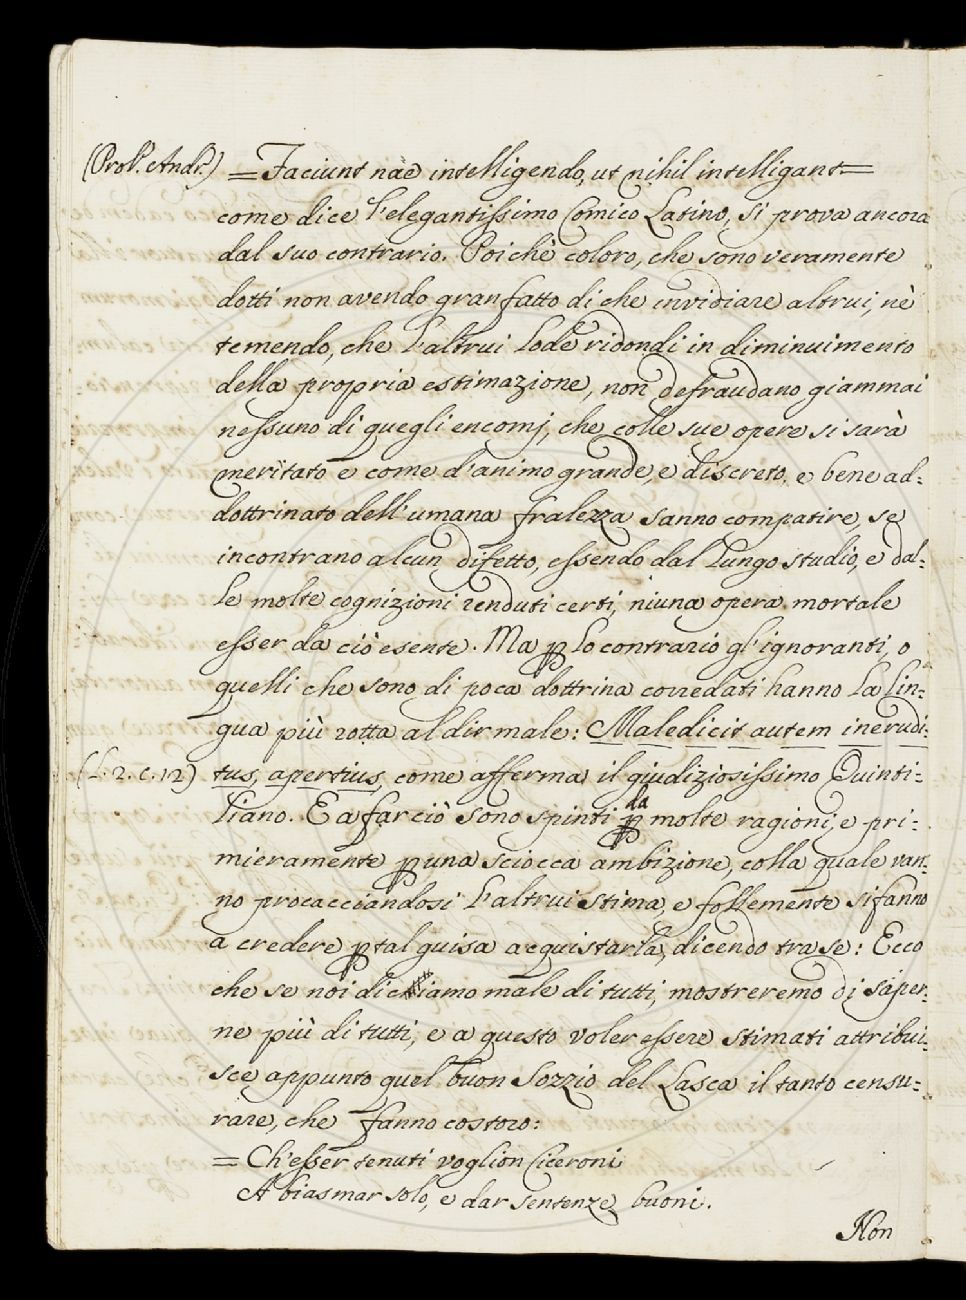 (Prol. Andr.) =Faciunt nae intelligendo, ut nihil intelligant=
come dice l'elegantissimo Comico Latino, si prova ancora
dal suo contrario. Poichè coloro, che sono veramente
dotti non avendo gran fatto di che invidiare altrui, nè
temendo, che l'altrui lode ridondi in diminuimento
della propria estimazione, non defraudano giammai
nessuno di quegli encomj, che colle sue opere si sarà
meritato e come d'animo grande, e discreto, e bene ad:
dottrinato dell'umana fralezza sanno compatire, se
incontrano alcun difetto, essendo dal lungo studio, e dal:
le molte cognizioni renduti certi, niuna opera mortale
esser da ciò esente. Ma p lo contrario gl'ignoranti, o
quelli che sono di poca dottrina corredati hanno la lin:
gua più rotta al dir male: Maledicit autem inerudi:
(L. 2. c. 12) tus apertius, come afferma il giudiziosissimo Quinti:
liano. E a far ciò sono spinti da molte ragioni, e pri:
mieramente p una sciocca ambizione, colla quale van:
no procacciandosi l'altrui stima, e follemente si fanno
a credere p tal guisa acquistarla, dicendo tra se: Ecco
che se noi diciamo male di tutti, mostreremo di saper:
ne più di tutti, e a questo voler essere stimati attribui:
sce appunto quel buon Sozzio del Lasca il tanto censu:
rare, che fanno costoro:
= Ch'esser tenuti voglion Ciceroni
A biasmar solo, e dar sentenze buoni.
Non